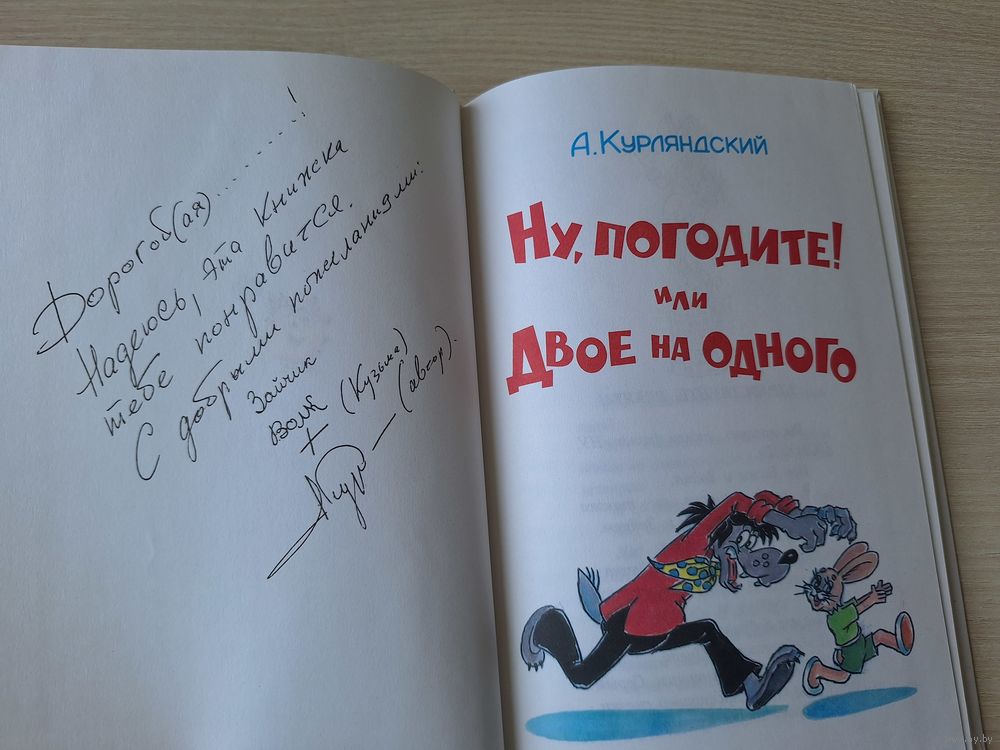 Дорогой(ая)..........!
Надеюсь, эта книжка
тебе понравится.
С добрыми пожеланиями:
Зайчик
Волк (Кузьма)
+
— (автор).
А. Курляндский
Ну, погодите!
или
Двое на одного